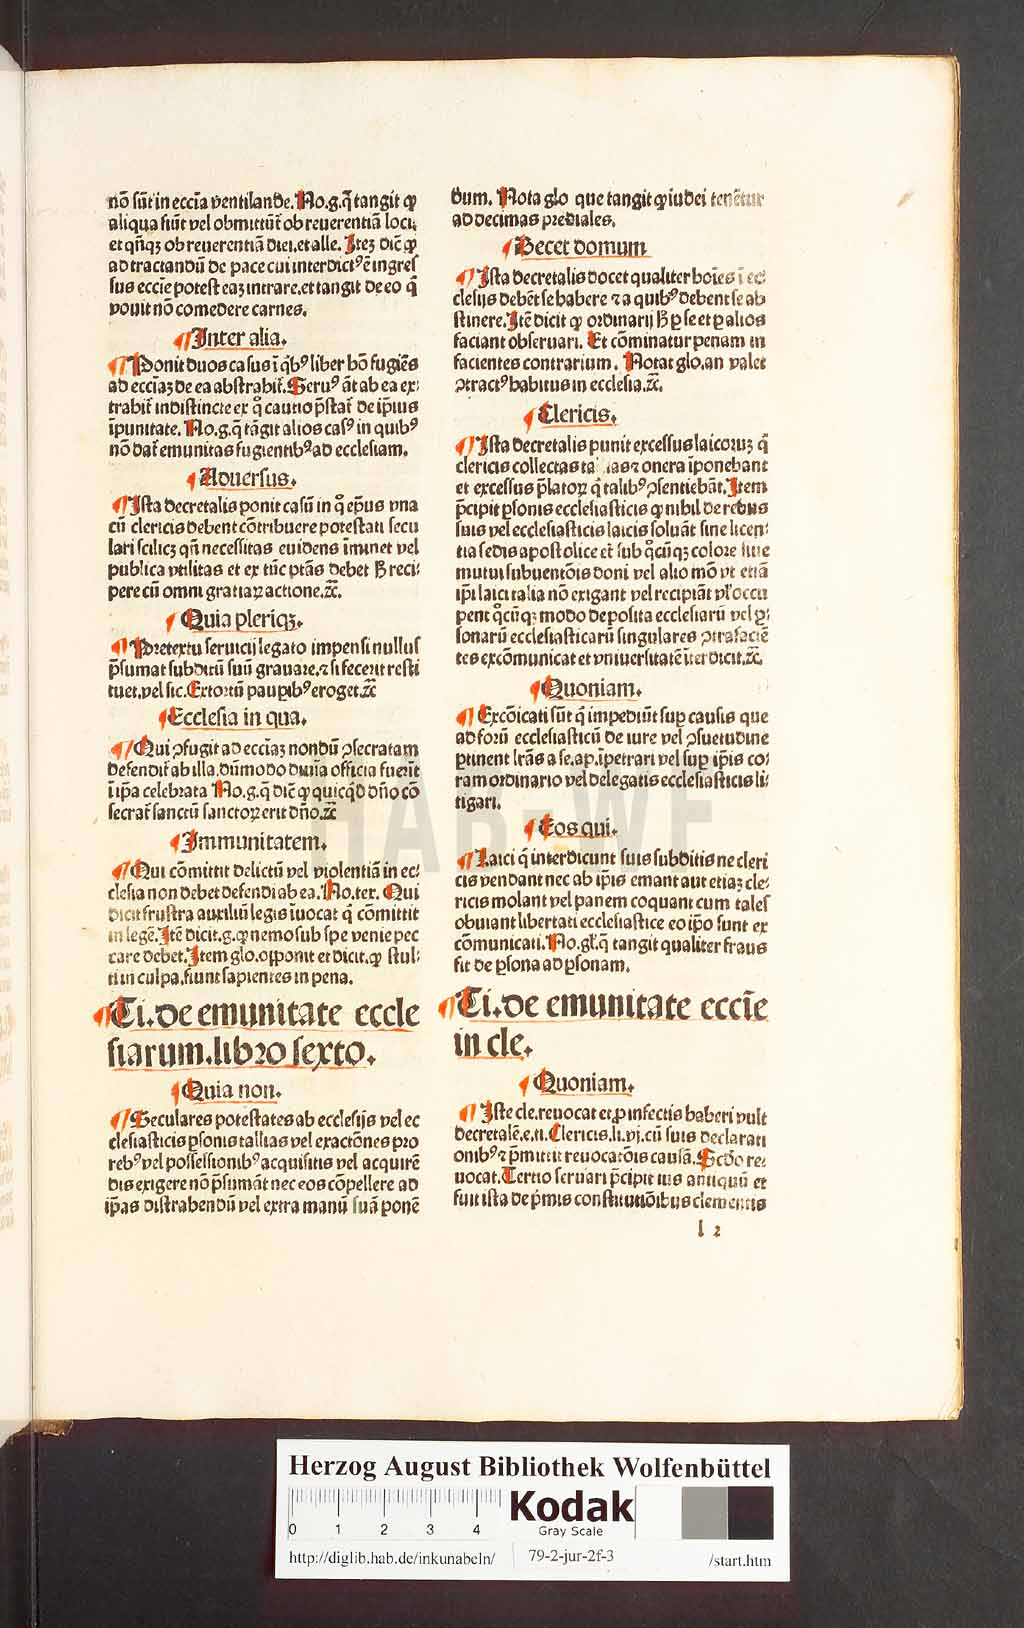 nō sūt in eccīa ventilande. No.g. q̄ tangit ꝙ
aliqua fiūt vel obmittūt̄ ob reuerentiā loci,
et qn̄qꝫ ob reuerentiā diei. et alle. Iteꝫ dic̄ ꝙ
ad tractandū de pace cui interdictꝰ ē ingres
sus eccīe potest eaꝫ intrare. et tangit de eo q̄
vouit nō comedere carnes.
Inter alia.
Ponit duos casus ī q̇bꝰ liber hō fugiēs
ad eccīaꝫ de ea abstrahit̄. Seruꝰ āt ab ea ex:
trahit̄ indistincte ex quo cautio p̄stat̄ de ip̄ius
īpunitate. No.g. q̄ tāgit alios casꝰ in quibꝰ
nō dat̄ emunitas fugientibꝰ ad ecclesiam.
Aduersus.
Ista decretalis ponit casū in quo ep̄us vna
cū clericis debent cōtribuere potestati secu
lari scilicꝫ qn̄ necessitas euidens īminet vel
publica vtilitas et ex tūc ptās debet hͦ reci:
pere cū omni gratiaꝝ actione. ⁊c̄.
Quia pleriqꝫ.
Pretextu seruicij legato impensi nullus
p̄sumat subditū suū grauare. ⁊ si fecerit resti
tuet. vel sic. Extortū pauꝑibꝰ eroget. ⁊c̄
Ecclesia in qua.
Qui ꝯfugit ad eccīaꝫ nondū ꝯsecratam
defendit̄ ab illa. dūmodo diuīa officia fuerīt
ī ip̄a celebrata No.g. q̄ dic̄ ꝙ quicq̇d dn̄o cō
secrat̄ sanctū sanctoꝝ erit dn̄o. ⁊c̄
Immunitatem.
Qui cōmittit delictū vel violentiā in ec:
clesia non debet defendi ab ea. No. ter. Qui
dicit frustra auxiliū legis īuocat q̄ cōmittit
in legē. Itē dicit.g. ꝙ nemo sub spe venie pec
care debet. Item glo. opponit et dicit. ꝙ stul:
ti in culpa. fiunt sapientes in pena.
Ti. de emunitate eccle
siarum. libro sexto.
Quia non.
Seculares potestates ab ecclesijs vel ec
clesiasticis ꝑsonis tallias vel exactōnes pro
rebꝰ vel possessionibꝰ acquisitis vel acquirē
dis exigere nō p̄sumāt nec eos cōpellere ad
ip̄as distrahendū vel extra manū suā ponē
dum. Nota glo que tangit ꝙ iudei tenētur
ad decimas prediales.
Decet domum
Ista decretalis docet qualiter hoīes ī ec:
clesijs debēt se habere ⁊ a quibꝰ debent se ab
stinere. Itē dicit ꝙ ordinarij hͦ ꝑ se et ꝑ alios
faciant obseruari. Et cōminatur penam in
facientes contrarium. Notat glo. an valet
ꝯtractꝰ habitus in ecclesia. ⁊c̄.
Clericis.
Ista decretalis punit excessus laicoruꝫ q̄
clericis collectas ⁊ onera īponebant
et excessus p̄latoꝝ q̄ talibꝰ ꝯsentiebāt. Item
p̄cipit ꝑsonis ecclesiasticis ꝙ nihil de rebus
suis vel ecclesiasticis laicis soluāt sine licen:
tia sedis apostolice et̄ sub quocūqꝫ colore siue
mutui subuentōis doni vel alio mō vt etiā
ip̄i laici talia nō exigant vel recipiāt vl̓ occu
pent quocūqꝫ modo deposita ecclesiarū vel ꝑ:
sonarū ecclesiasticarū singulares ꝯtrafaciē
tes excōmunicat et vniuersitatē īterdicit. ⁊c̄.
Quoniam.
Excōicati sūt q̄ impediūt suꝑ causis que
ad forū ecclesiasticū de iure vel ꝯsuetudine
ꝑtinent lr̄as a se. ap. īpetrari vel suꝑ ip̄is co:
ram ordinario vel delegatis ecclesiasticis li:
tigari.
Eos qui.
Laici q̄ interdicunt suis subditis ne cleri
cis vendant nec ab ip̄is emant aut etiaꝫ cle:
ricis molant vel panem coquant cum tales
obuiant libertati ecclesiastice eo ip̄o sunt ex
cōmunicati. No. gl̓. q̄ tangit qualiter fraus
fit de ꝑsona ad ꝑsonam.
Ti. de emunitate eccīe
in cle.
Quoniam.
Iste cle. reuocat et ꝓ infectis haberi vult
decretalē. e. ti. Clericis. li. vj. cū suis declarati
onibꝰ ⁊ p̄mittit reuocatōis causā. Scd̄o re:
uocat. Tertio seruari p̄cipit ius antiquū et
fuit ista de p̄mis constitutiōibus clementis
l 2
HAB-WF
Herzog August Bibliothek Wolfenbüttel
0 1 2 3 4
Kodak
Gray Scale
http://diglib.hab.de/inkunabeln/ 79-2-jur-2f-3 /start.htm